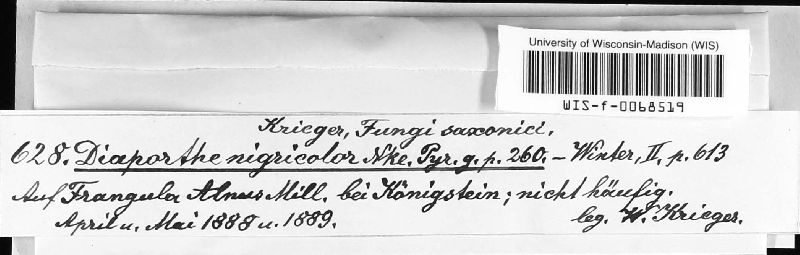 University of Wisconsin-Madison (WIS)
WIS-f-0068519
Krieger, Fungi saxonici.
628. Diaporthe nigricolor Nke. Pyr. g. p. 260. – Winter, II, p. 613
Auf Frangula Alnus Mill. bei Königstein; nicht häufig.
April u. Mai 1888 u. 1889. leg. W. Krieger.